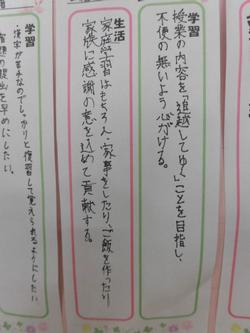 学習
授業の内容を「追越してゆく」ことを目指し、
不便の無いよう心がける。
生活
家庭学習はもちろん、家事をしたり、ご飯を作ったり
家族に感謝の意を込めて貢献する。
学習
・漢字が苦手なのでしっかりと復習して覚えられるようにしたい
・宿題の提出を早めにしたい。